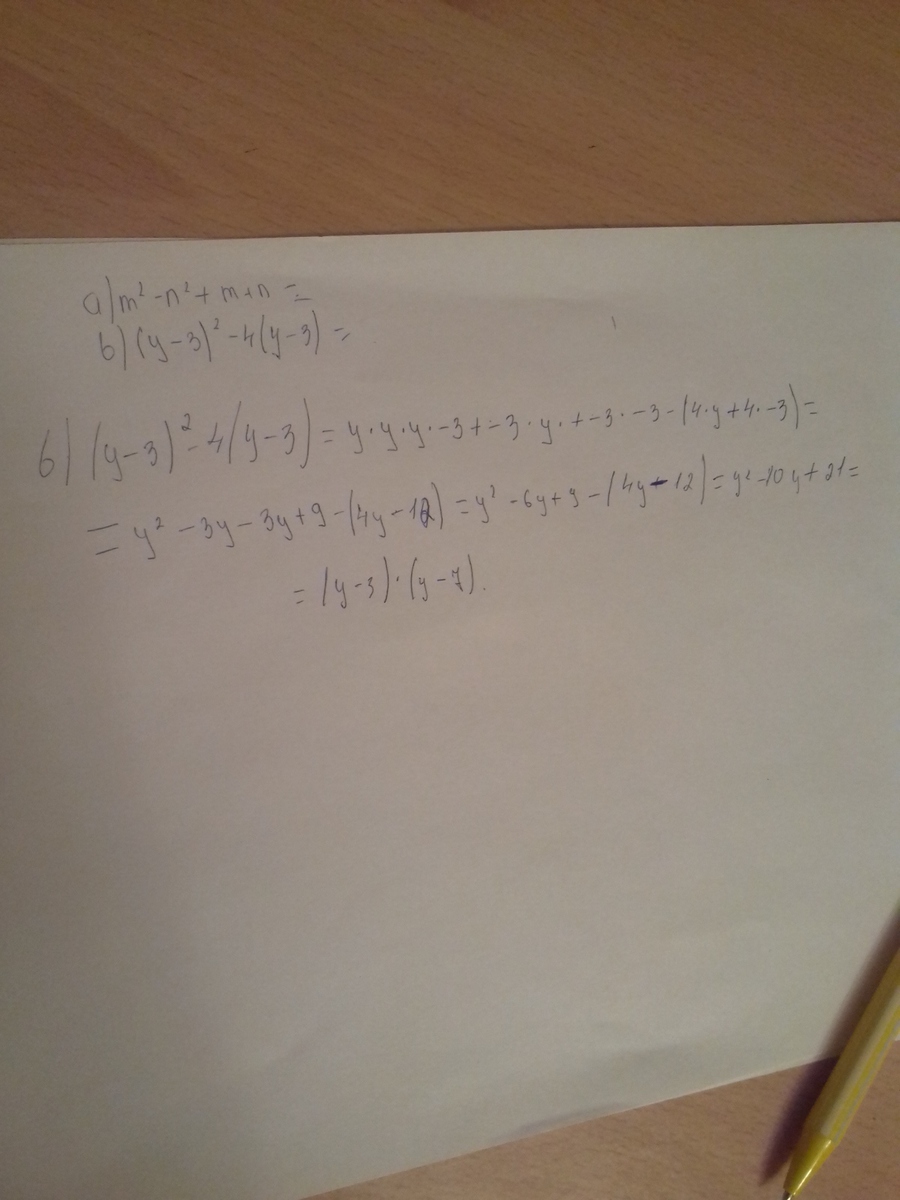 а) m² - n² + m + n =
б) (y - 3)² - 4(y - 3) =
б) (y - 3)² - 4(y - 3) = y · y · y · -3 + -3 · y · + -3 · -3 - (4 · y + 4 · -3) =
= y² - 3y - 3y + 9 - (4y - 12) = y² - 6y + 9 - (4y - 12) = y² - 10y + 21 =
= (y - 3) · (y - 7).